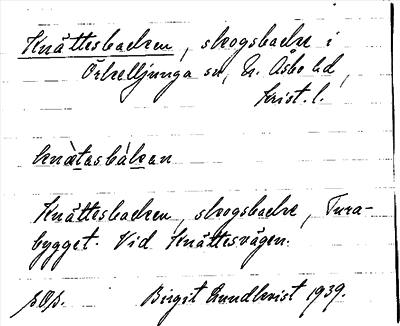 Knättesbacken, skogsbacke i
Örkelljunga sn, N. Åsbo hd,
Krist. l.
knὰtasbákan
Knättesbacken, skogsbacke, Tura-
bygget. Vid Knättesvägen.
Birgit Rundkvist 1939.